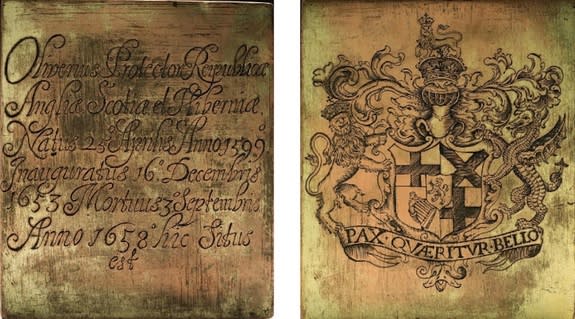 Oliverius Protector Reipublicæ
Angliæ Scotiæ et Hiberniæ
Natus 25º Aprilis Anno 1599º
Inauguratus 16º Decembris
1653 Mortuus 3º Septembris
Anno 1658º hic Situs
est
PAX QVÆRITVR BELLO